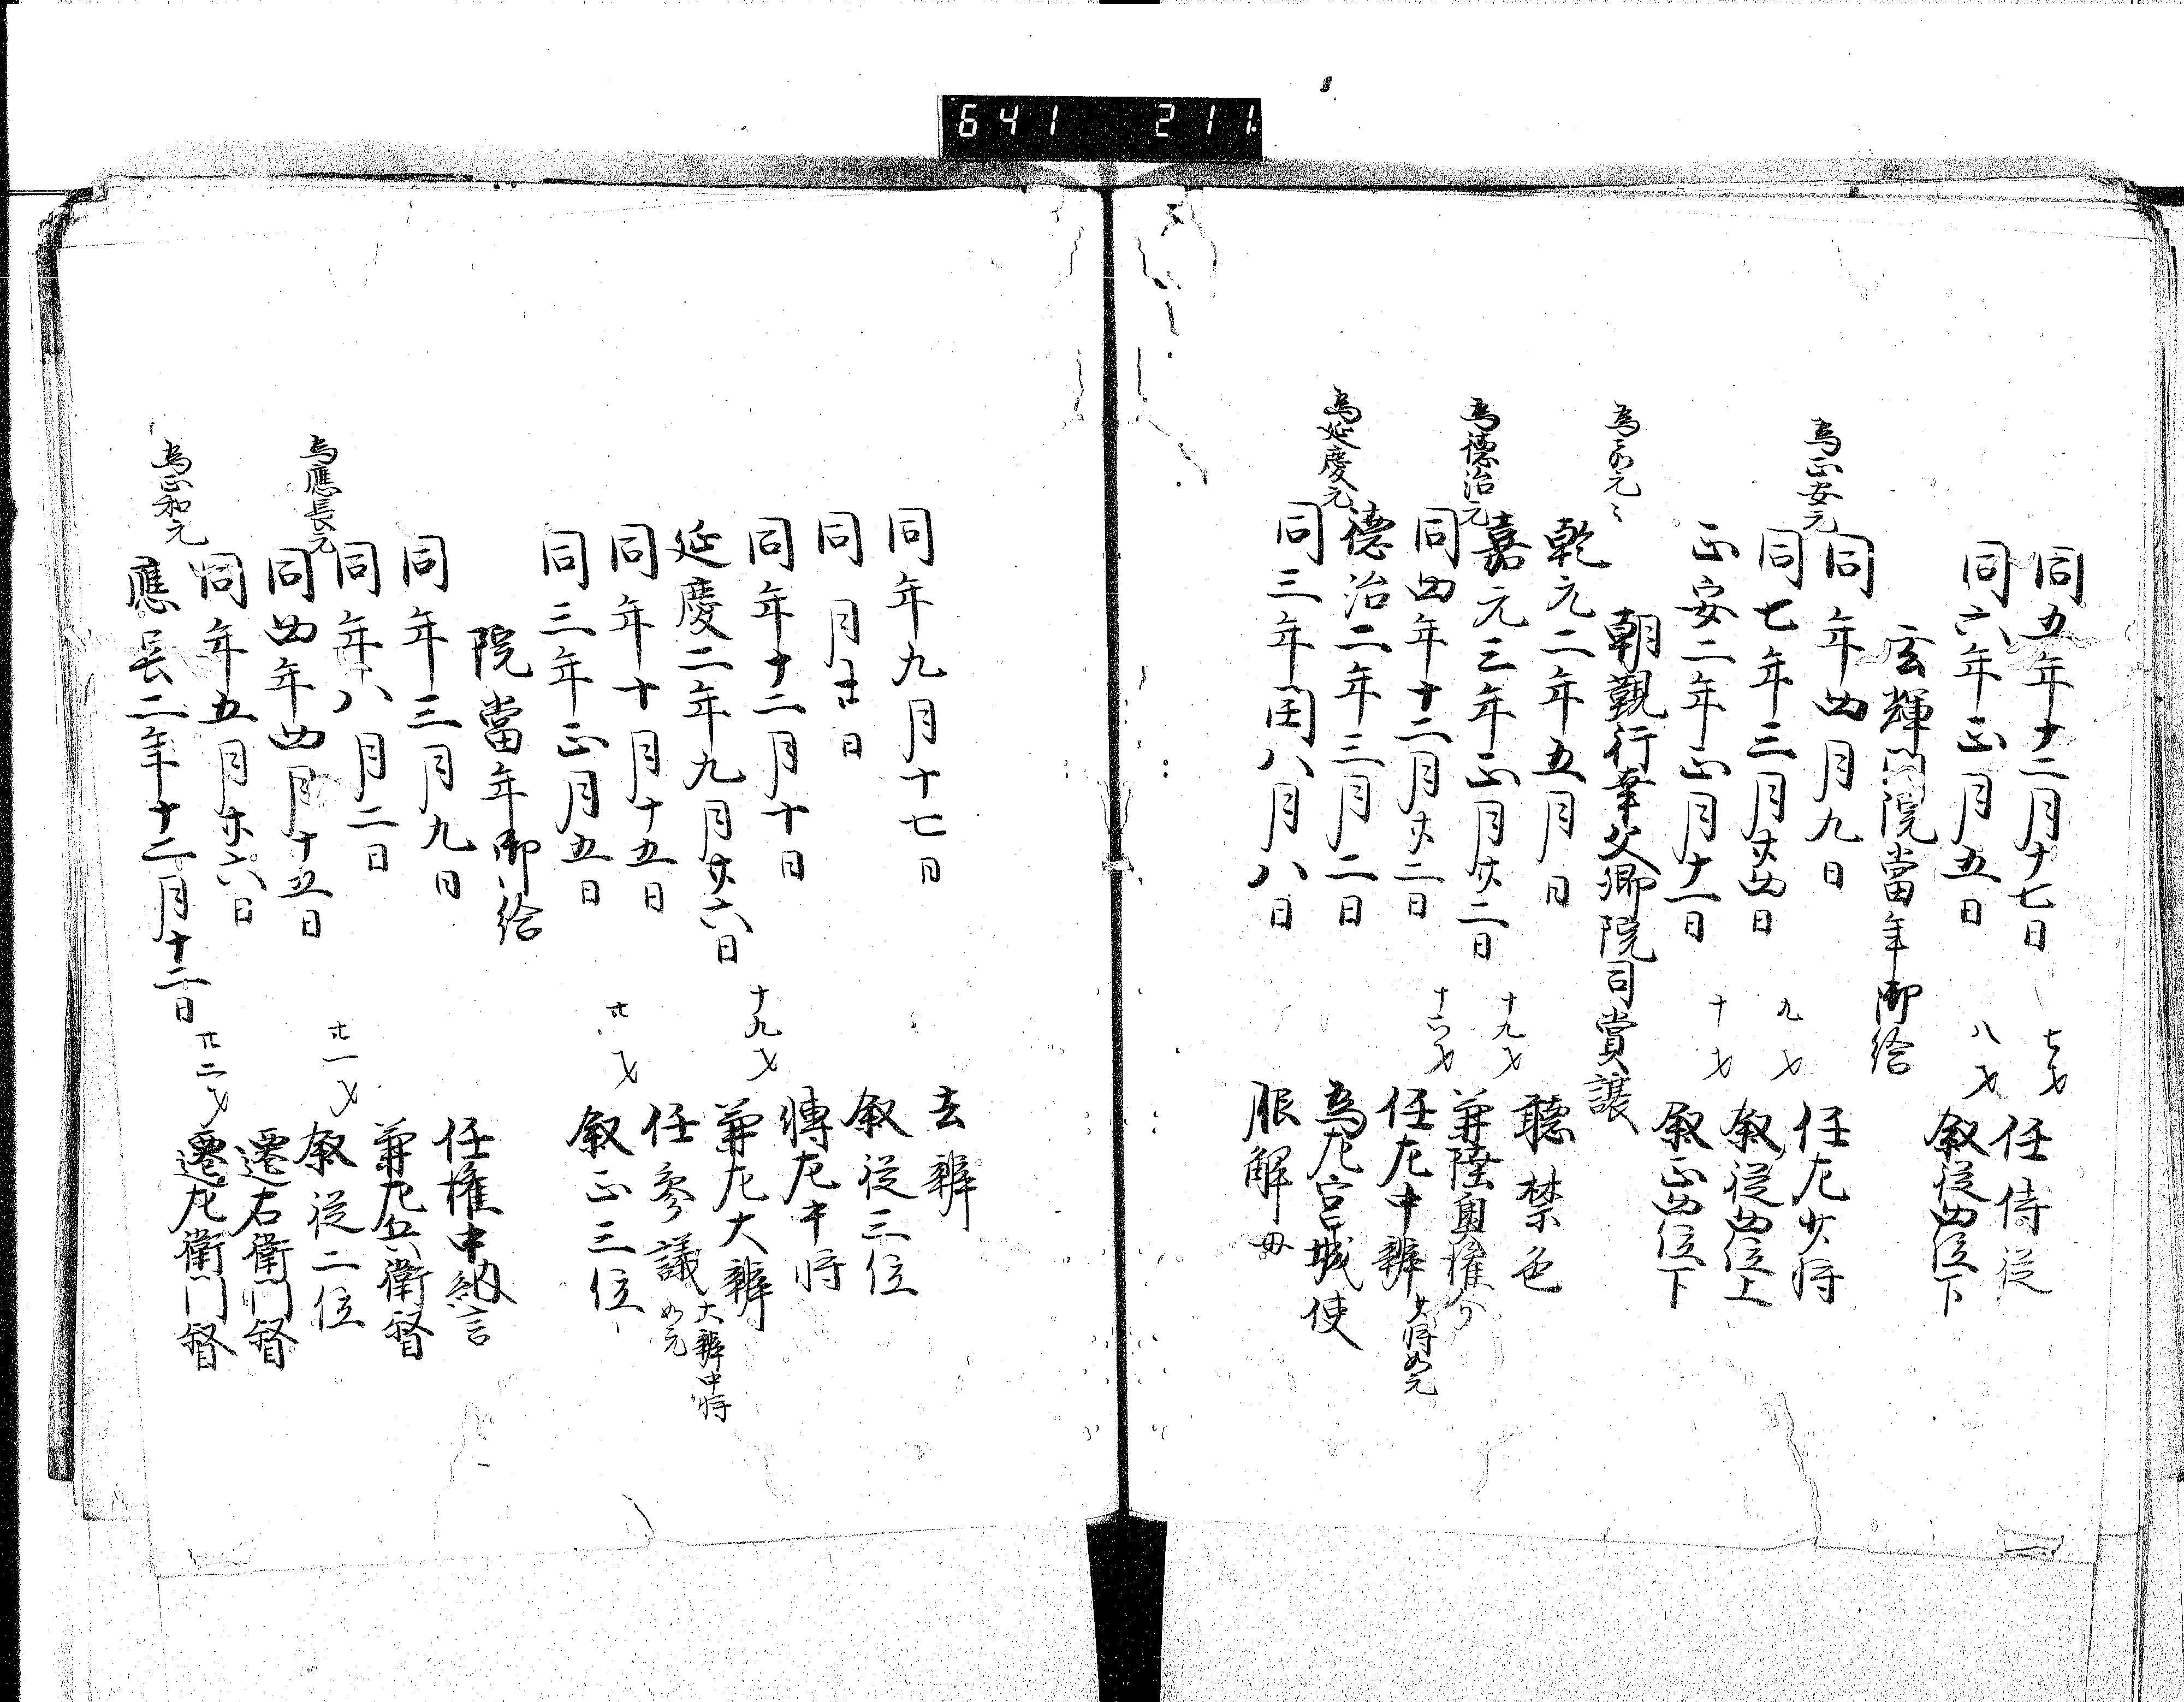 641 211
同五年十二月十七日 七才 任侍従
同六年正月五日 八才 叙従四位下
玄輝門院當年御給
同年四月九日 任左少将
為正安元
同七年三月廿四日 九才 叙従四位上
正安二年正月十一日 十才 叙正四位下
朝覲行幸父卿院司賞譲
為嘉元々
乾元二年五月 日 聴禁色
嘉元三年正月廿二日 十九才 兼陸奥権介
為徳治元
同四年十二月廿二日 十六才 任左中辨 少将如元
徳治二年三月二日 為左宮城使
為延慶元
同三年閏八月八日 服解 母
同年九月十七日 去辨
同月 日 叙従三位
同年十二月十日 十九才 轉左中将
延慶二年九月廿六日 兼左大辨
同年十月十五日 任参議 大辨中将如元
同三年正月五日 廿才 叙正三位
院當年御給
同年三月九日 任権中納言
同年八月二日 兼左兵衛督
為應長元
同四年四月十五日 廿一才 叙従二位
同年五月廿六日 遷右衛門督
為正和元
應長二年十二月十二日 廿二才 遷左衛門督